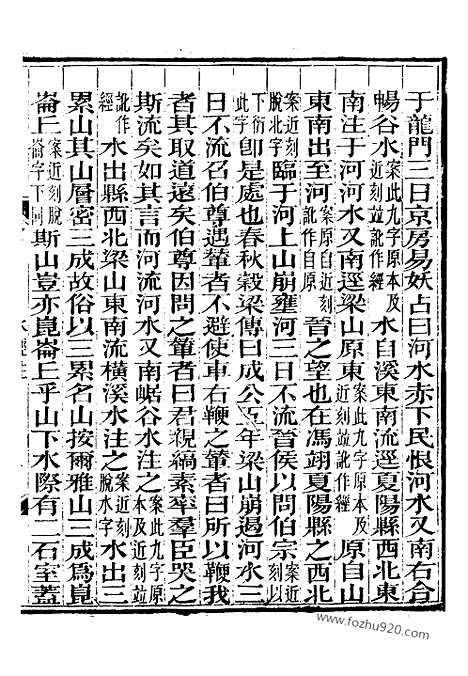 于龍門三日京房易妖占曰河水赤下民恨河水又南右合
暢谷水案此九字原本及近刻竝訛作經水自溪東南流逕夏陽縣西北東
南注于河河水又南逕梁山原東案此九字原本及近刻竝訛作經原自山
東南出至河案原自近刻訛作自原晉之望也在馮翊夏陽縣之西北
案近刻脫北字臨于河上山崩壅河三日不流晉侯以問伯宗案近刻以
下衍此字卽是處也春秋穀梁傳曰成公五年梁山崩遏河水三
日不流召伯尊遇輦者不避使車右鞭之輦者曰所以鞭我
者其取道遠矣伯尊因問之輦者曰君親縞素率羣臣哭之
斯流矣如其言而河流河水又南崌谷水注之案此九字原本及近刻竝
訛作經水出縣西北梁山東南流橫溪水注之案近刻脫水字水出三
累山其山層密三成故俗以三累名山按爾雅山三成爲崑
崙丘案近刻脫崙字下同斯山豈亦崑崙丘乎山下水際有二石室蓋
www.fozhu920.com